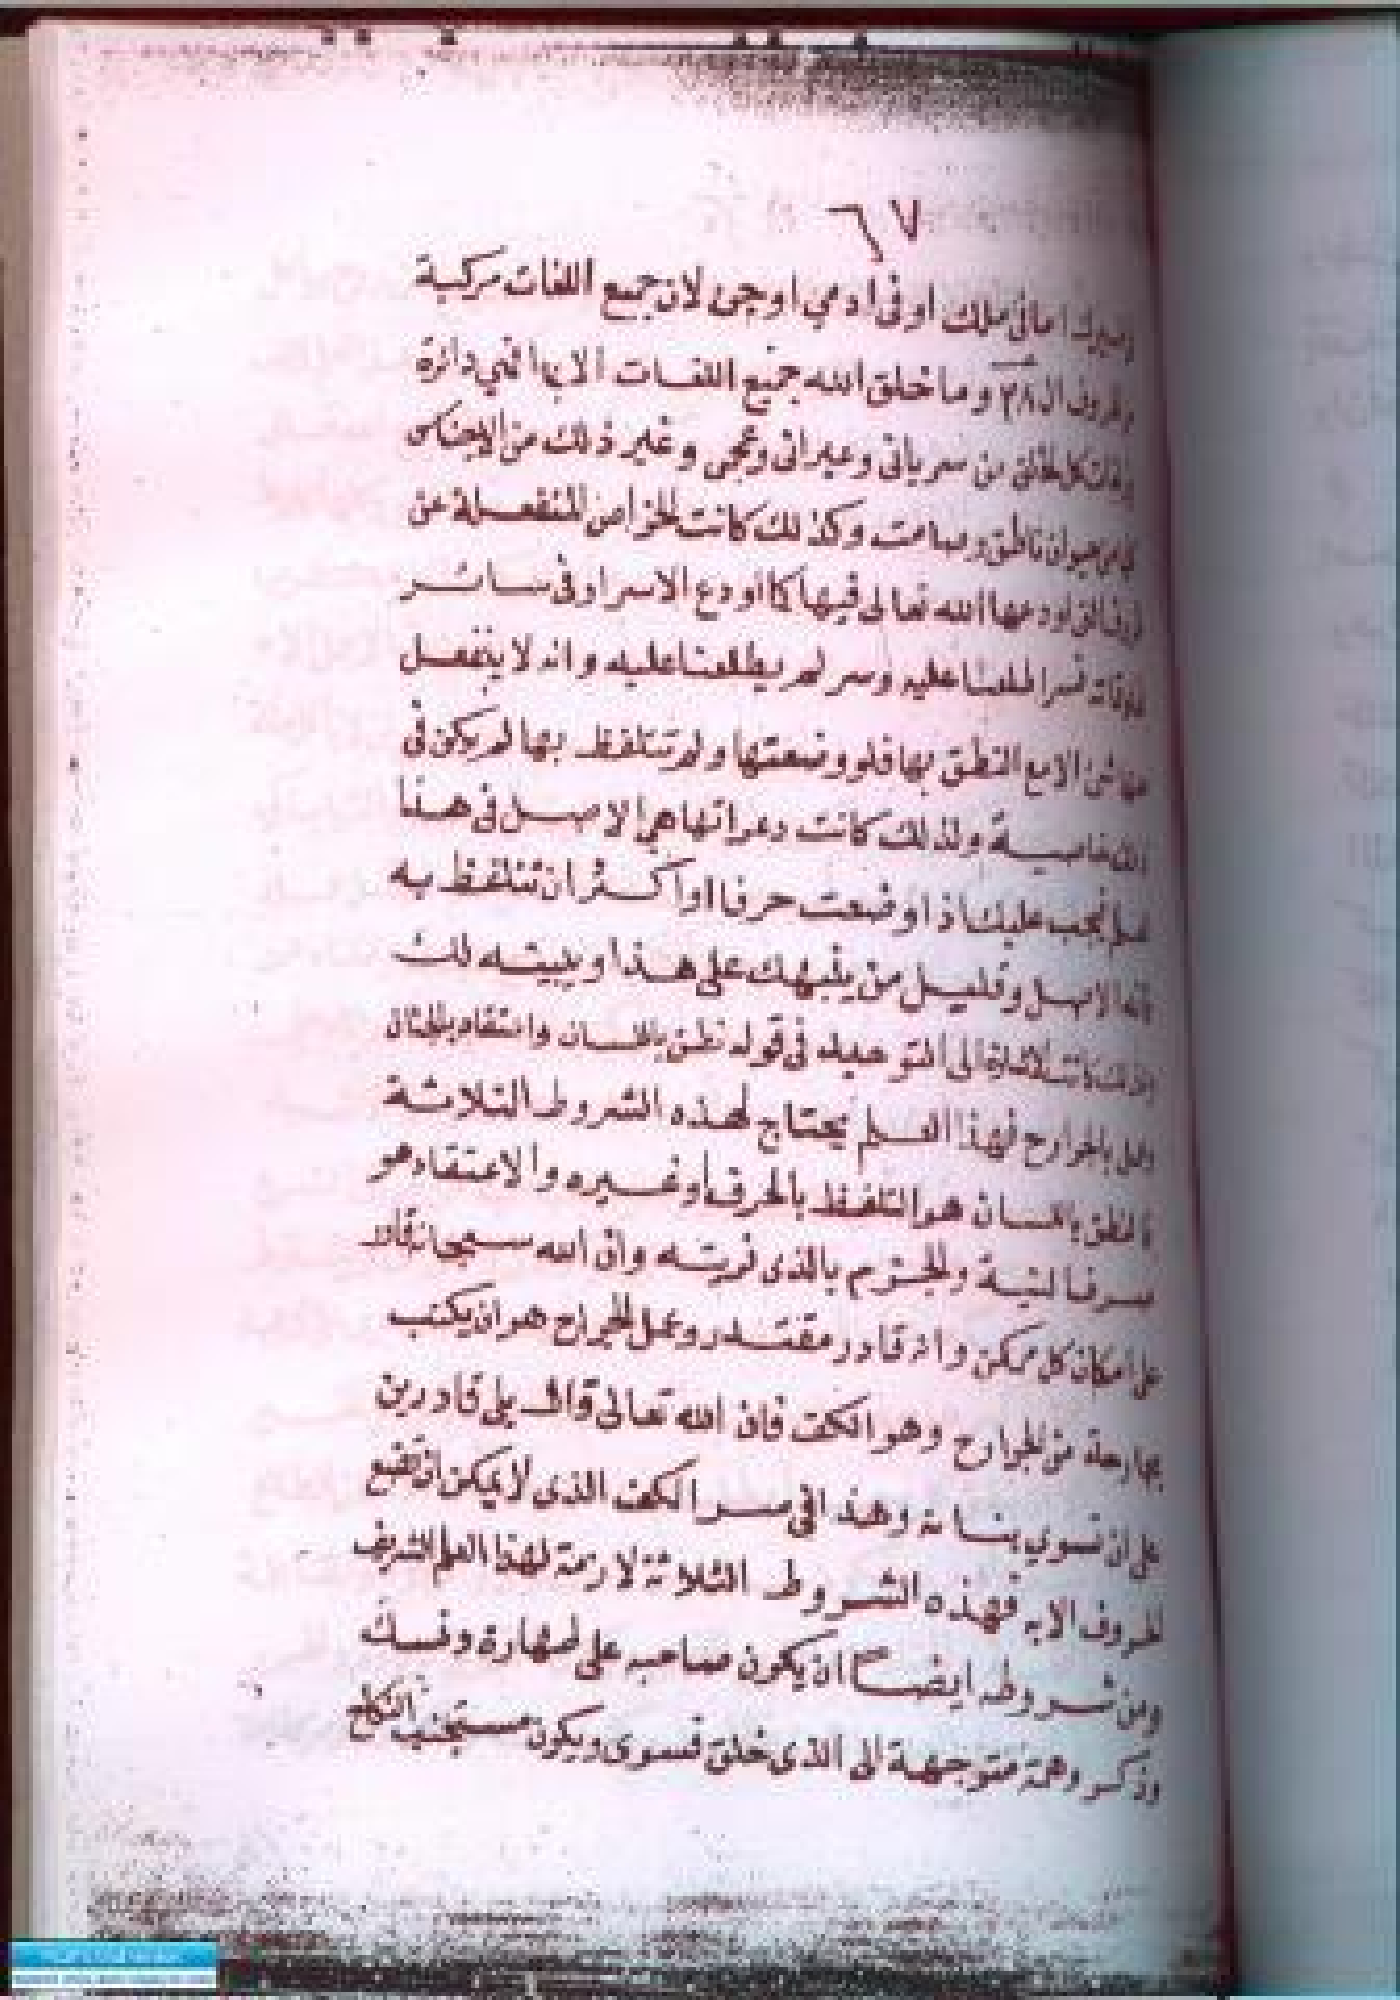 ٦٧
اما فى ملك او فى ادمي او جن لان جميع اللغات مركبة
ال ٢٨ وما خلق الله جميع اللغات الا بها فهي دائرة
من سريانى وعبرانى وعجمى وغير ذلك من الاجناس
ناطق وصامت وكذلك كانت الخواص المنفعلة عن
التى اودعها الله تعالى فيها كما اودع الاسرار فى سائر
فسر اطلعنا عليه وسر لم يطلعنا عليه وانه لا ينفعل
شئ الا مع النطق بها فلو وضعتها ولم تتلفظ بها لم يكن فى
خاصية ولذلك كانت دعواتها هي الاصل فى هذا
يجب عليك اذا وضعت حرفا او اكثر ان تتلفظ به
الاصل وقليل من ينبهك على هذا ويبينه لك
الى التوحيد فى قوله نطق باللسان واعتقاد بالجنان
بالجوارح فهذا العلم يحتاج لهذه الشروط الثلاثة
فالنطق باللسان هو التلفظ بالحرف أو غيره والاعتقاد هو
صرف النية والجزم بالذى نويته وان الله سبحانه قادر
على امكان كل ممكن وانه قادر مقتدر وعمل الجوارح هو ان يكتب
بجارحة من الجوارح وهو الكف فان الله تعالى قال بلى قادرين
على ان نسوي بنانه وهذا فى سر الكف الذى لا يمكن ان تضع
الحروف الا به فهذه الشروط الثلاثة لازمة لهذا العلم الشريف
ومن شروطه ايضا ان يكون صاحبه على طهارة ونسك
وذكر وهمة متوجهة الى الذى خلق فسوى ويكون